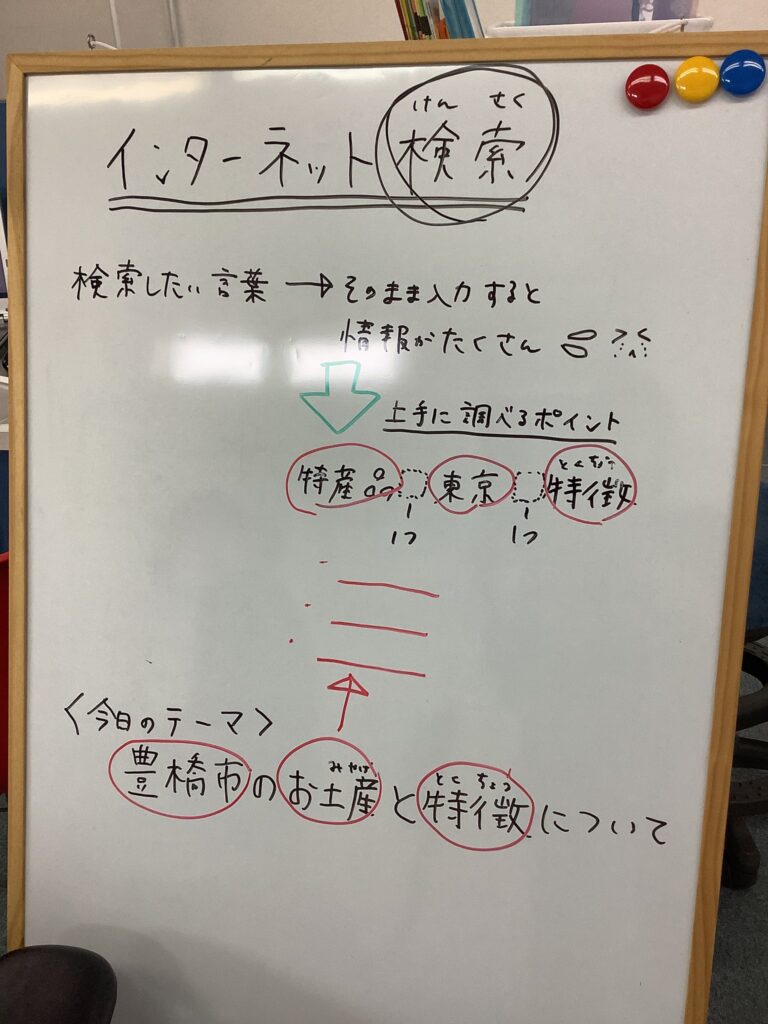 けん さく
インターネット検索
検索したい言葉 → そのまま入力すると
情報がたくさん
上手に調べるポイント
とくちょう
特産品 東京 特徴
1つ 1つ
〈今日のテーマ〉
みやげ とくちょう
豊橋市のお土産と特徴について